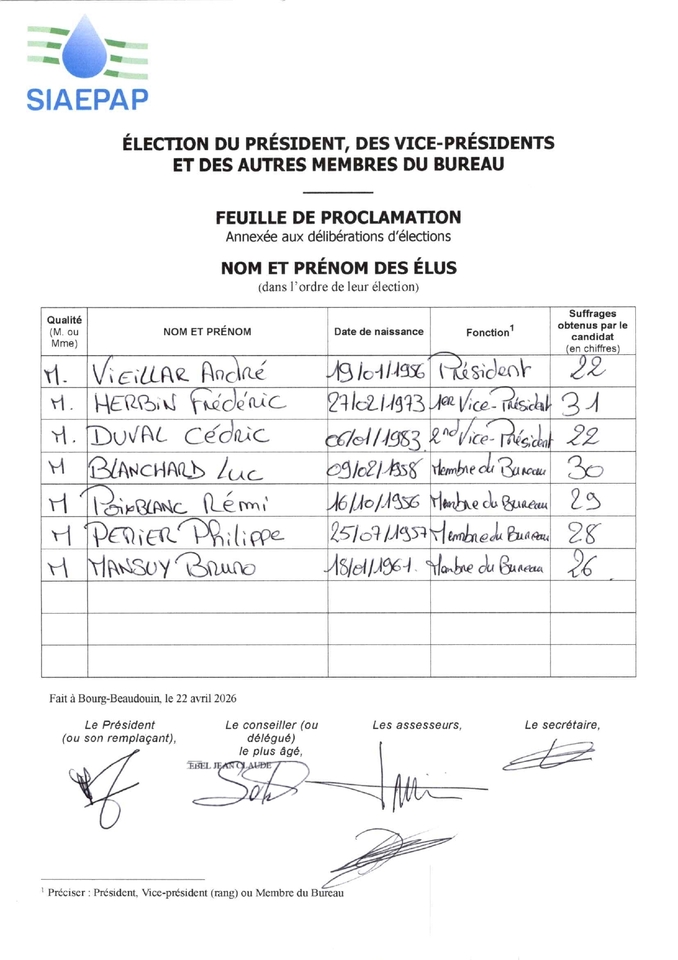 SIAEPAP
ÉLECTION DU PRÉSIDENT, DES VICE-PRÉSIDENTS
ET DES AUTRES MEMBRES DU BUREAU
FEUILLE DE PROCLAMATION
Annexée aux délibérations d'élections
NOM ET PRÉNOM DES ÉLUS
(dans l'ordre de leur élection)
Qualité (M. ou Mme) NOM ET PRÉNOM Date de naissance Fonction¹ Suffrages obtenus par le candidat (en chiffres)
M. VIEILLAR André 19/01/1956 Président 22
M. HERBIN Frédéric 27/02/1973 1er Vice-Président 31
M. DUVAL Cédric 06/01/1983 2nd Vice-Président 22
M BLANCHARD Luc 09/02/1958 Membre du Bureau 30
M POIXBLANC Rémi 16/10/1956 Membre du Bureau 29
M PERIER Philippe 25/07/1957 Membre du Bureau 28
M MANSUY Bruno 18/01/1961. Membre du Bureau 26
Fait à Bourg-Beaudouin, le 22 avril 2026
Le Président (ou son remplaçant), Le conseiller (ou délégué) le plus âgé, Les assesseurs, Le secrétaire,
EBEL JEAN CLAUDE
¹ Préciser : Président, Vice-président (rang) ou Membre du Bureau